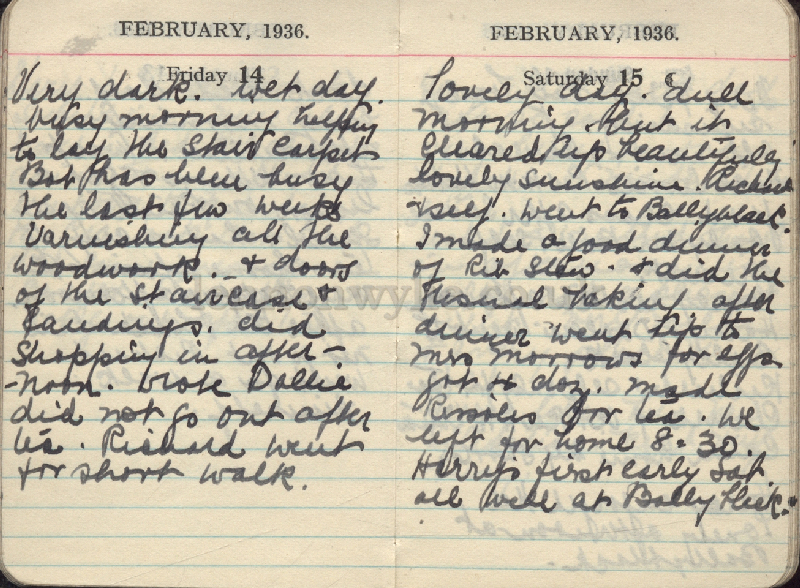 FEBRUARY, 1936.
Friday 14
Very dark. Wet day.
busy morning helping
to lay the stair carpet
Bob has been busy
the last few weeks
Varnishing all the
woodwork. & doors
of the staircase &
Landings. did
shopping in after-
-noon. wrote Dollie
did not go out after
tea. Richard went
for short walk.
FEBRUARY, 1936.
Saturday 15
Lovely day. dull
morning but it
cleared up beautifully
lovely sunshine. Richard
& self. went to Ballyhleck.
I made a good dinner
of Rib Stew. & did the
usual baking after
dinner went up to
Mrs Morrows for eggs
got 4 doz. made
Rissoles for tea. We
left for home 8-30.
Harrys first early Sat.
all well at Ballyhleck.